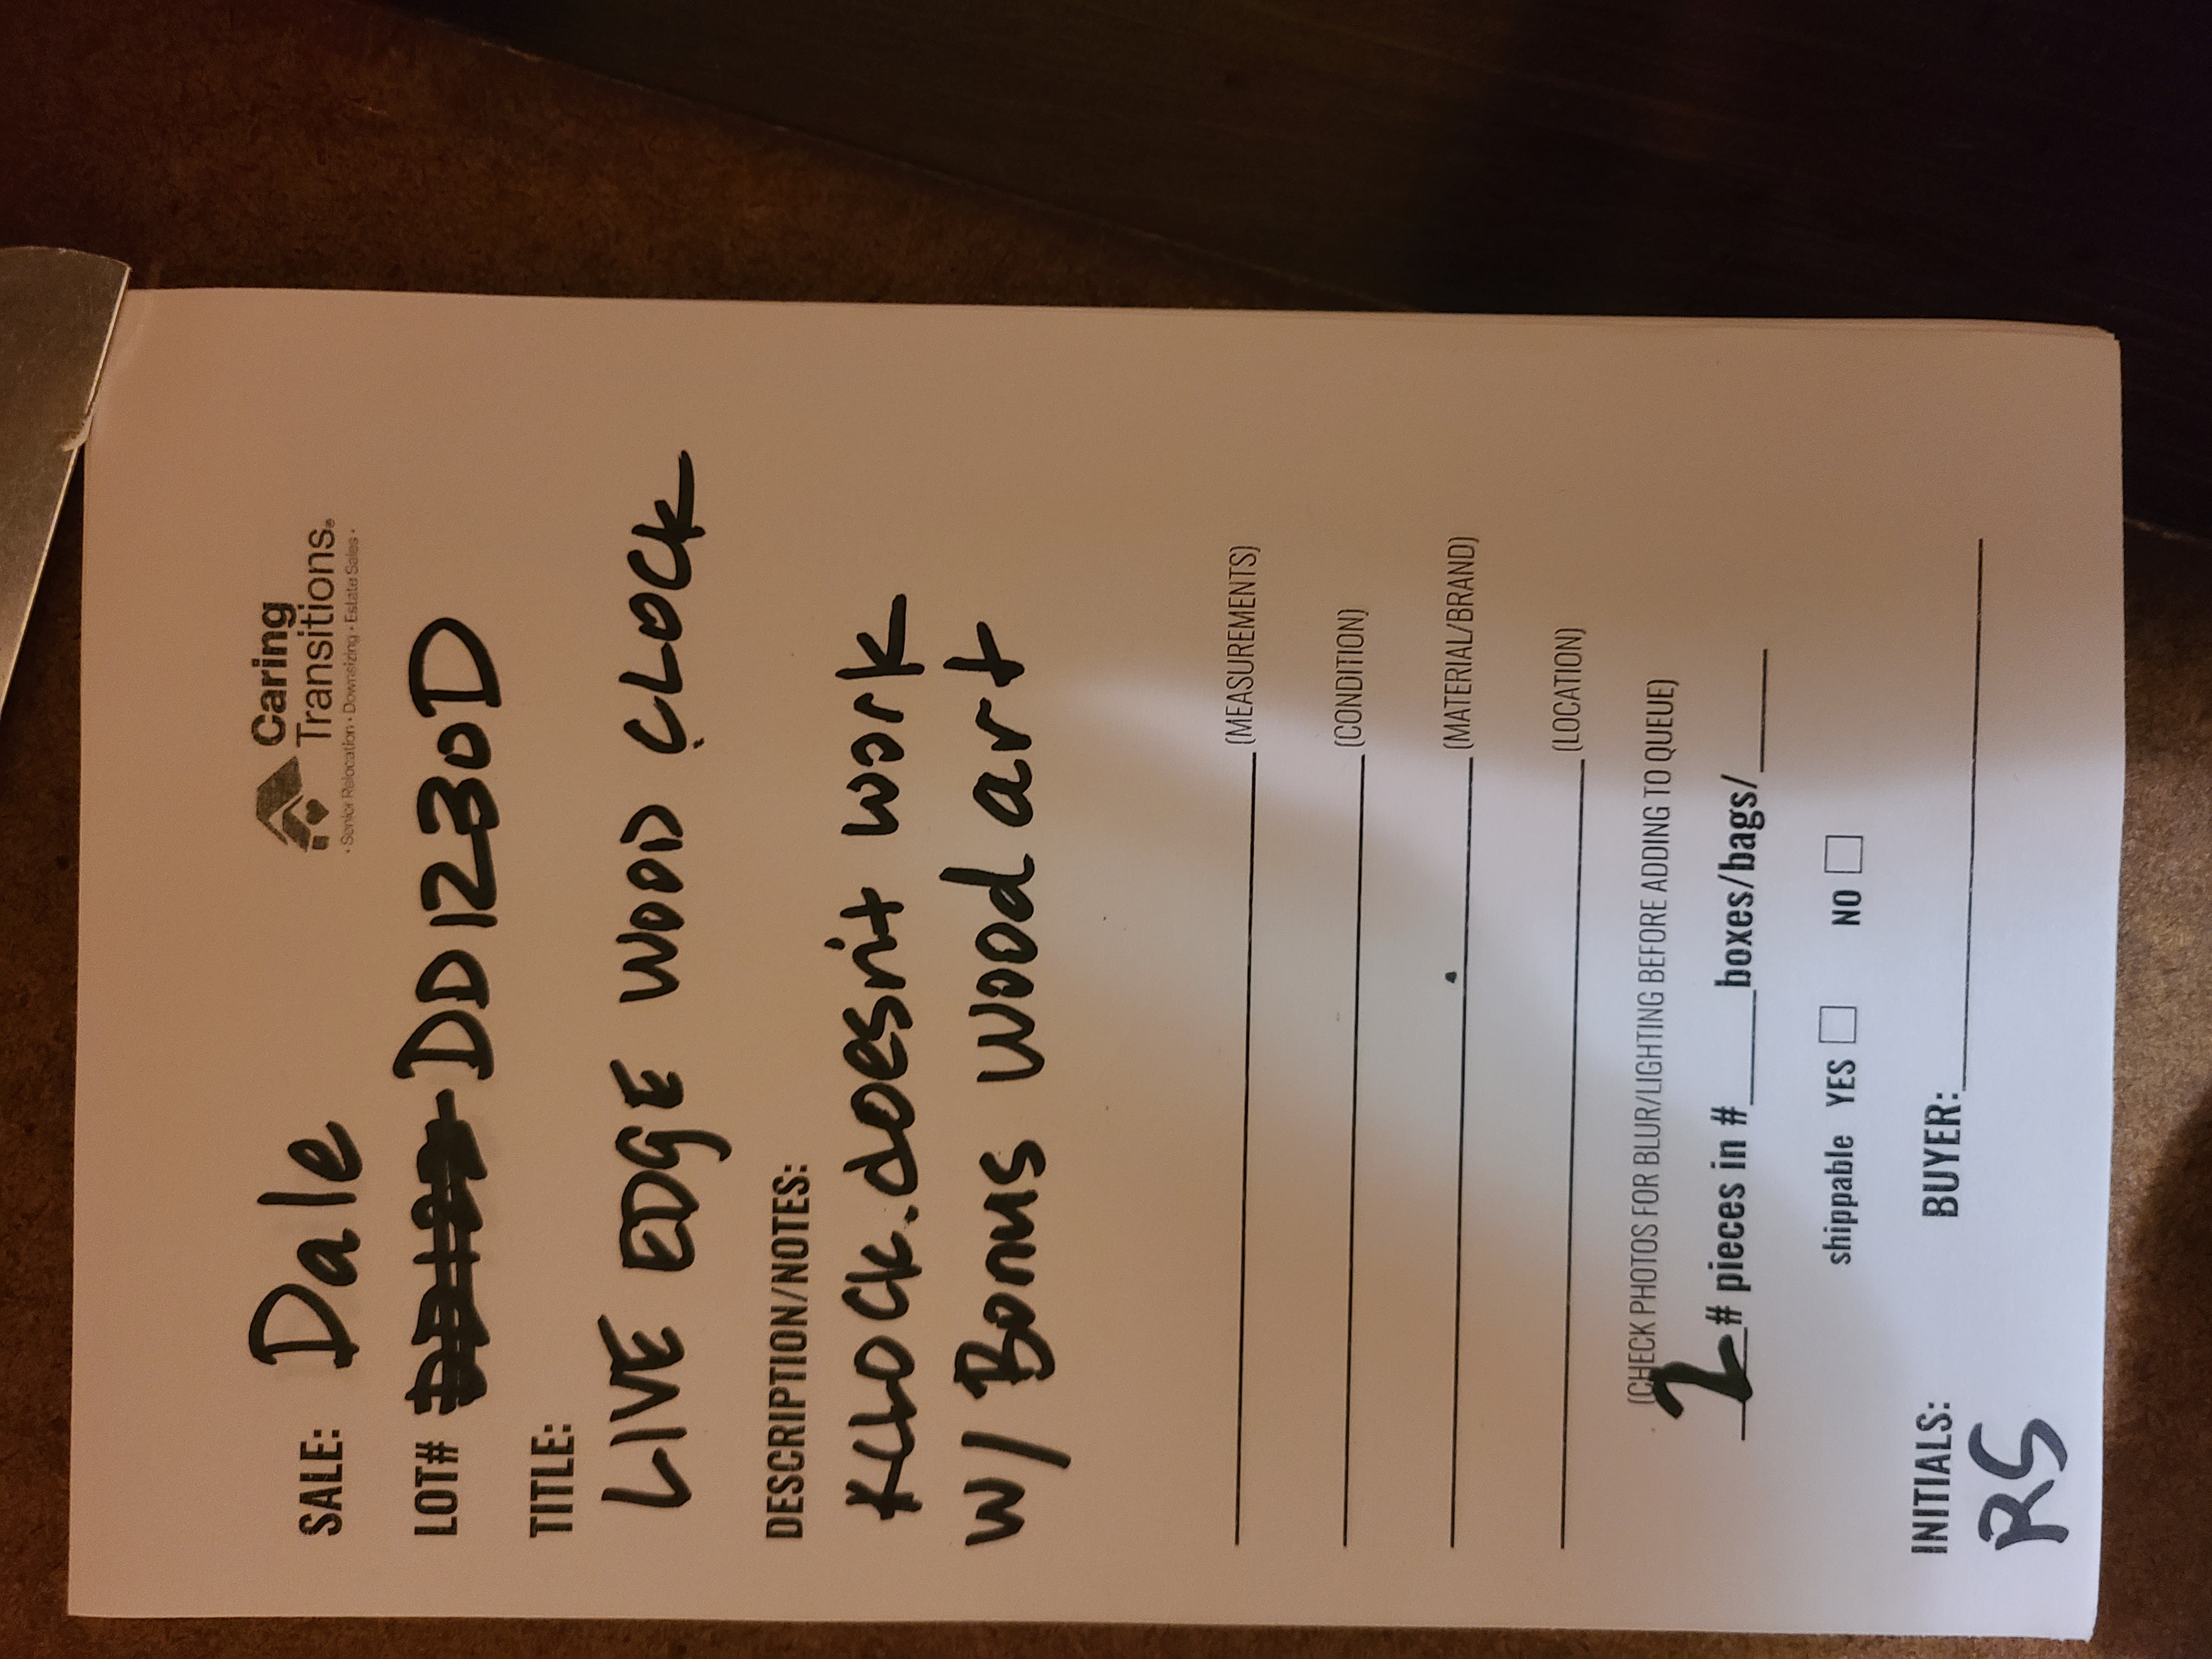 Caring
Transitions®
• Senior Relocation • Downsizing • Estate Sales •
SALE: Dale
LOT# DD1230D
TITLE:
LIVE EDGE WOOD CLOCK
DESCRIPTION/NOTES:
*CLOCK.doesn't work
w/ Bonus wood art
(MEASUREMENTS)
(CONDITION)
(MATERIAL/BRAND)
(LOCATION)
(CHECK PHOTOS FOR BLUR/LIGHTING BEFORE ADDING TO QUEUE)
2 # pieces in # boxes/bags/
shippable YES ☐ NO ☐
INITIALS: BUYER:
RS